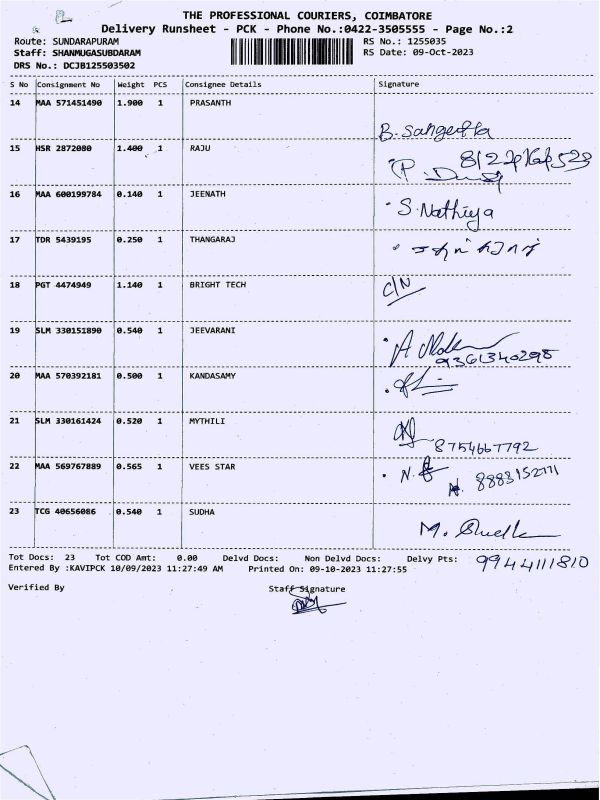 THE PROFESSIONAL COURIERS, COIMBATORE
Delivery Runsheet - PCK - Phone No.:0422-3505555 - Page No.:2
Route: SUNDARAPURAM
RS No.: 1255035
Staff: SHANMUGASUBDARAM
RS Date: 09-Oct-2023
DRS No.: DCJB125503502
S No Consignment No Weight PCS Consignee Details Signature
14 MAA 571451490 1.900 1 PRASANTH B. Sangeetha
15 HSR 2872080 1.400 1 RAJU
16 MAA 600199784 0.140 1 JEENATH S. Nathiya
17 TDR 5439195 0.250 1 THANGARAJ
18 PGT 4474949 1.140 1 BRIGHT TECH C/N
19 SLM 330151890 0.540 1 JEEVARANI
9361340298
20 MAA 570392181 0.500 1 KANDASAMY
21 SLM 330161424 0.520 1 MYTHILI
8754667792
22 MAA 569767889 0.565 1 VEES STAR N.
23 TCG 40656086 0.540 1 SUDHA
M.
Tot Docs: 23 Tot COD Amt: 0.00 Delvd Docs: Non Delvd Docs: Delvy Pts: 9944111810
Entered By :KAVIPCK 10/09/2023 11:27:49 AM Printed On: 09-10-2023 11:27:55
Verified By Staff Signature